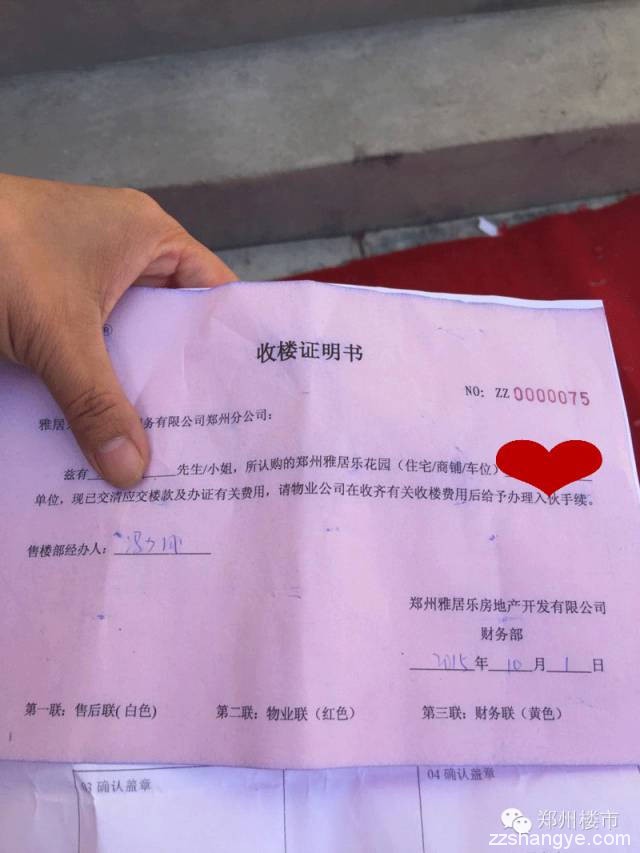 ®
收楼证明书
NO: ZZ 0000075
雅居 务有限公司郑州分公司:
兹有 先生/小姐，所认购的郑州雅居乐花园（住宅/商铺/车位）
单位，现已交清应交楼款及办证有关费用，请物业公司在收齐有关收楼费用后给予办理入伙手续。
售楼部经办人:
郑州雅居乐房地产开发有限公司
财务部
2015年10月1日
第一联：售后联(白色) 第二联：物业联（红色） 第三联：财务联（黄色）
03 确认盖章 04 确认盖章
郑州楼市
zzshangye.com